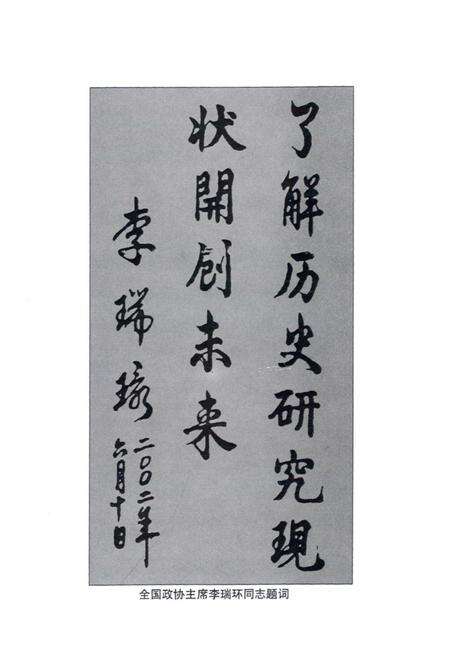 了解历史研究現
状開創未来
李瑞环
二〇〇二年
六月十日
全国政协主席李瑞环同志题词